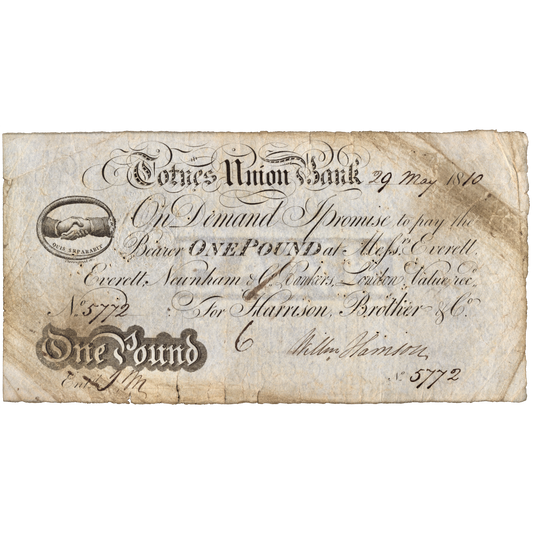 Totnes Union Bank 29 May 1810
On Demand I promise to pay the
QUIS SEPARABIT
Bearer ONE POUND at Messrs. Everett,
Everett, Newnham & Co. Bankers, London, Value recd.
No. 5772 For Harrison, Brother & Co.
One Pound
Entd.
No. 5772